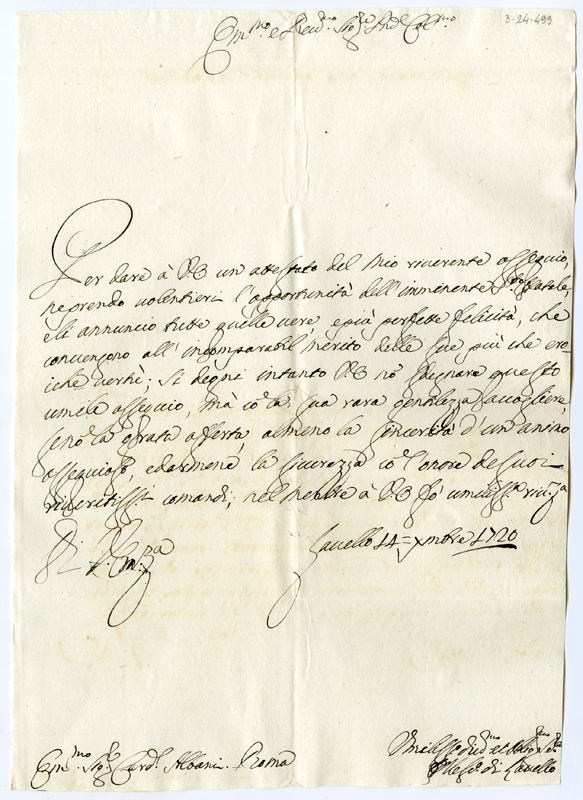 3-24-499
Em.mo e Reud.mo Sig.re Sig.re Col.mo
Per dare à V.E un attestato del mio riuerente ossequio,
ne prendo uolentieri l'opportunità dell'imminente S.to Natale,
e Li annuncio tutte quelle uere, e più perfette felicità, che
conuengono all'incomparabil merito delle sue più che ero=
iche uertù; Si degni intanto V.E nõ sdegnare questo
umile ossequio, mà cõ la sua rara gentilezza accogliere,
se nõ la grata offerta, almeno la sincerità d'un animo
ossequioso, e darmene la sicurezza cõ l'onore de suoi
riueritiss.i comandi; nel mentre à V.E fò umiliss.a riu.za
Di V. Em.za
Lauello 14 = Xmbre 1720
Em.mo Sig.re Card.l Albani. Roma
Umiliss.o diu.mo et obl.mo
Il Vesc.o di Lauello